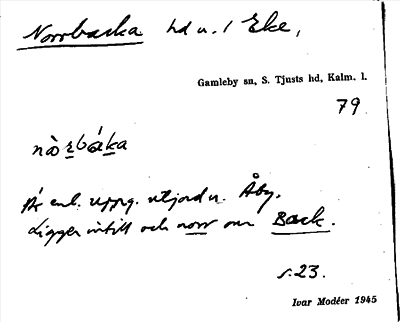 Norrbacka hd u. 1 Eke,
Gamleby sn, S. Tjusts hd, Kalm. l.
79
nòrbáka
Är enl. uppg. utjord u. Åby.
Ligger intill och norr om Back.
s. 23.
Ivar Modéer 1945